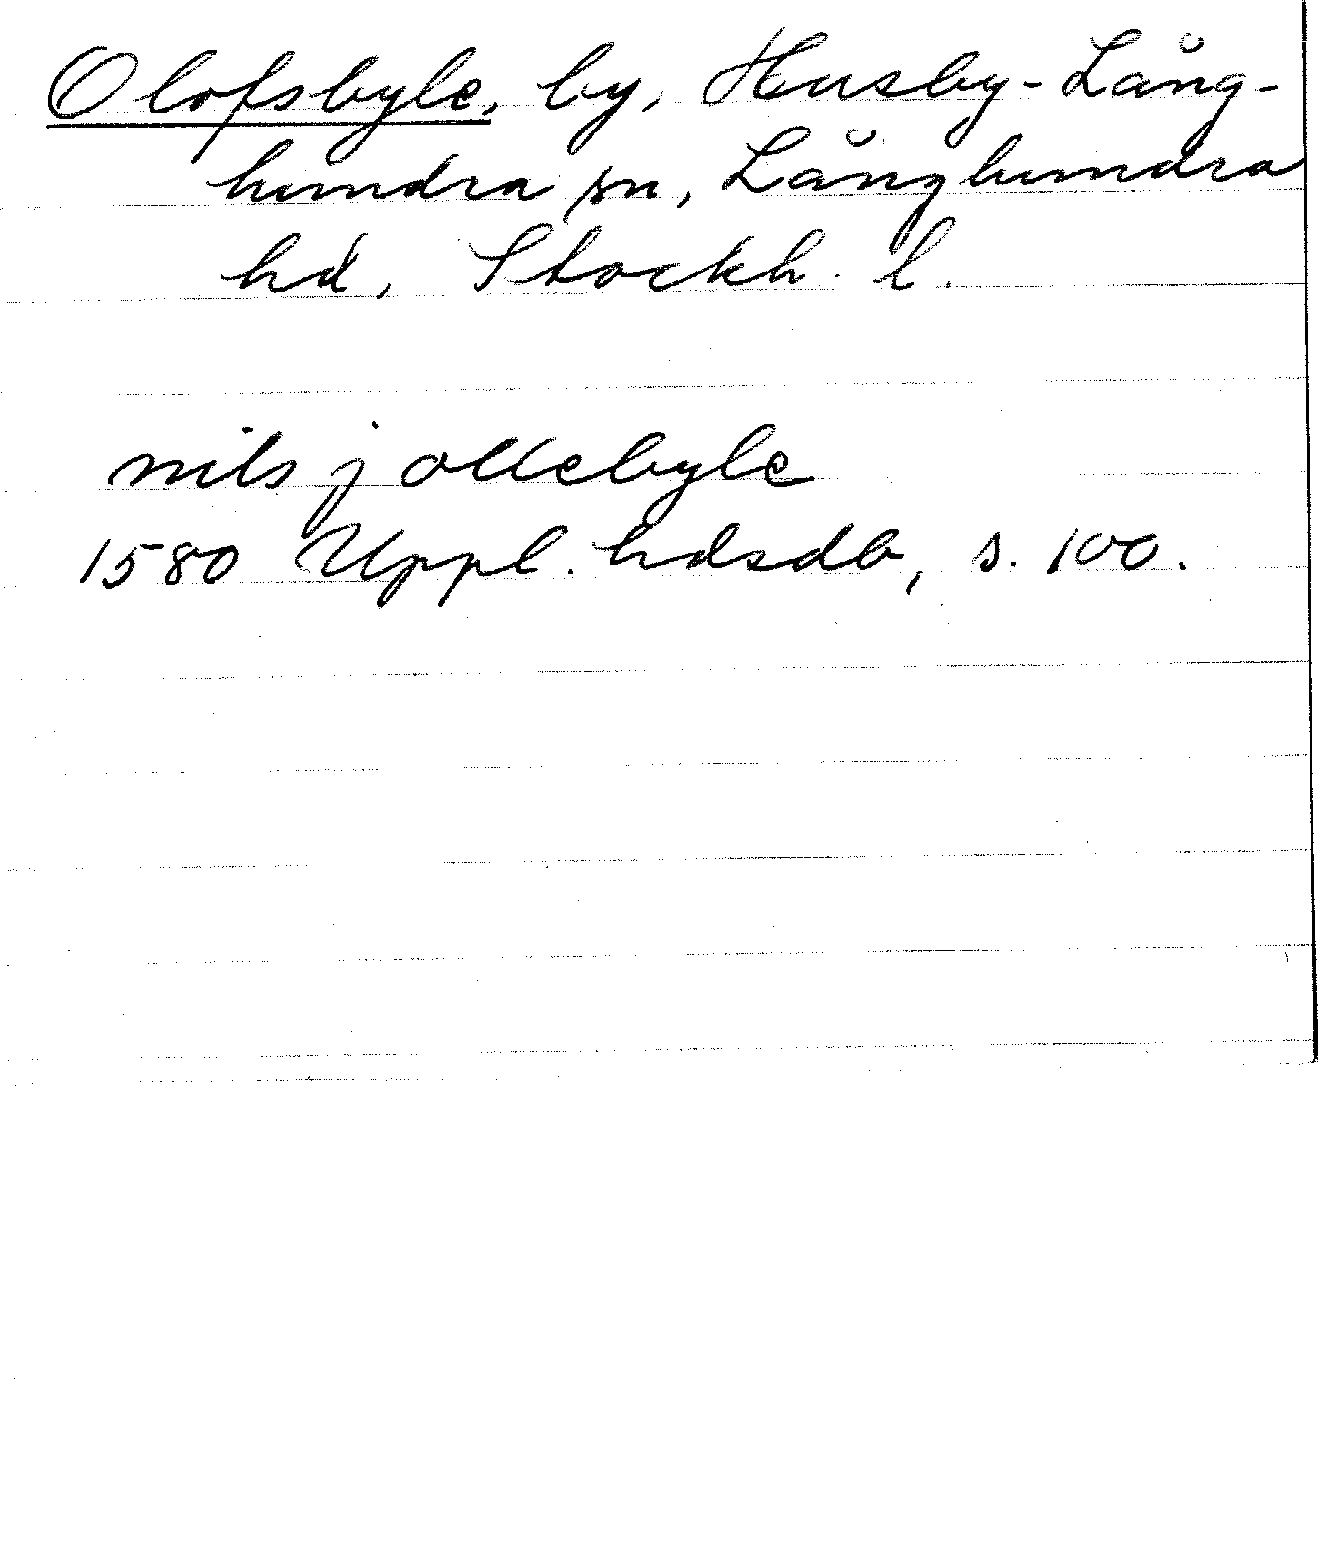 Olofsbyle, by, Husby-Lång-
hundra sn, Långhundra
hd, Stockh. l.
nils j ollebyle
1580 Uppl. hdsdb, s. 100.